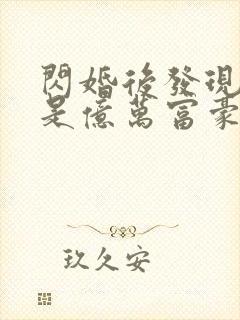 閃婚後發現
是億萬富豪
玖久安